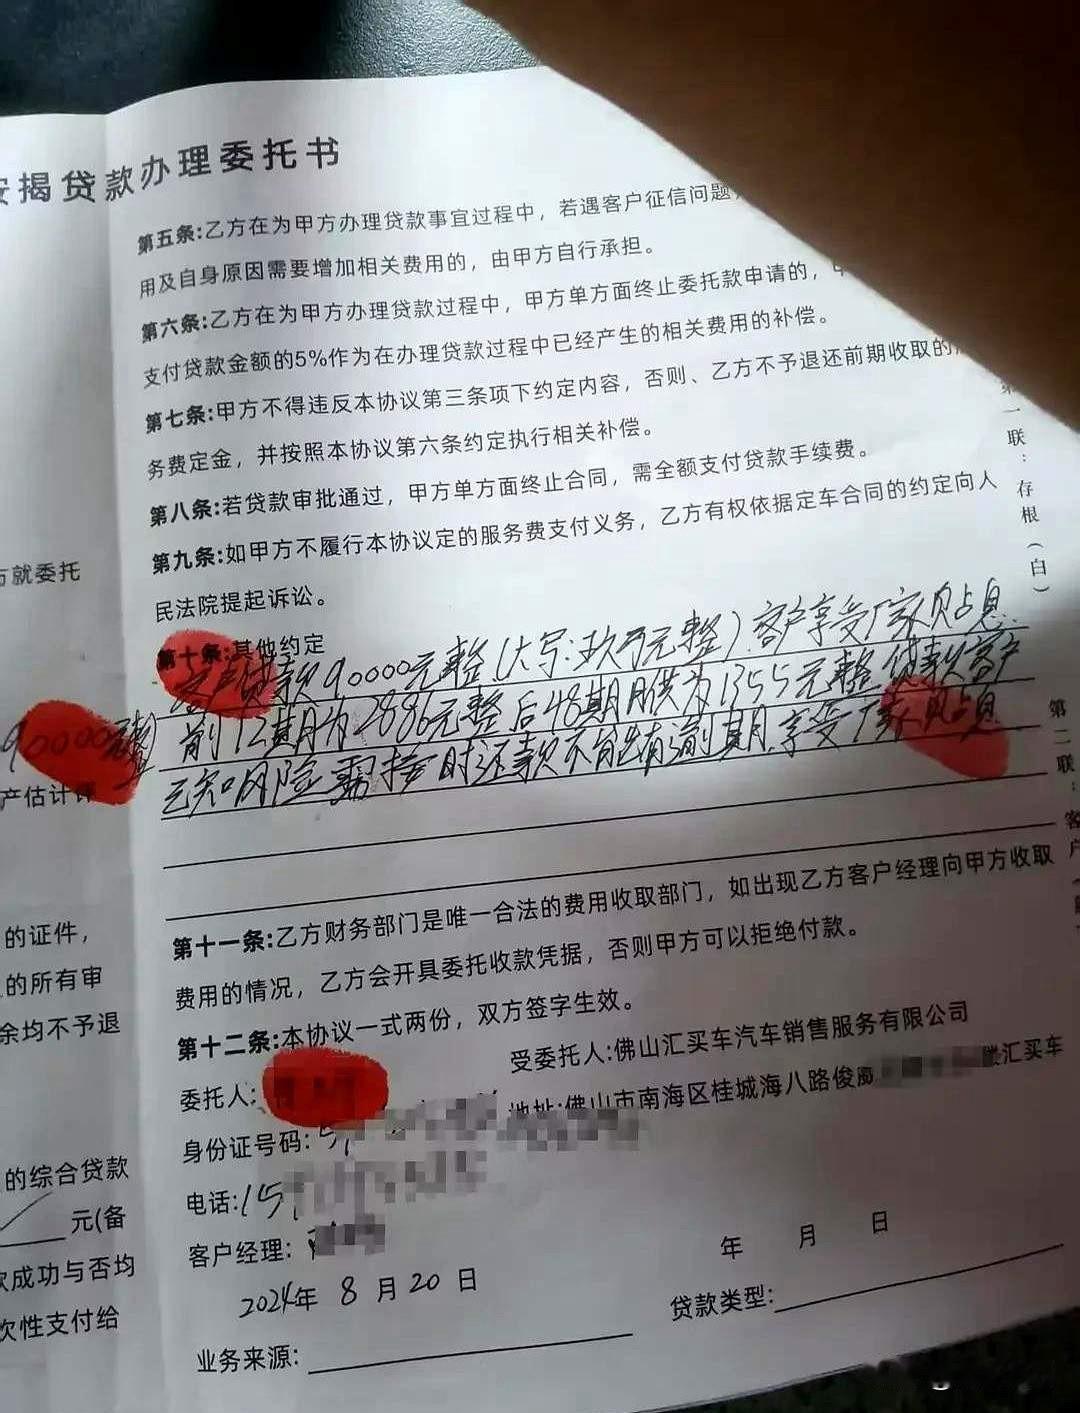 按揭贷款办理委托书
第五条:乙方在为甲方办理贷款事宜过程中，若遇客户征信问题，
用及自身原因需要增加相关费用的，由甲方自行承担。
第六条:乙方在为甲方办理贷款过程中，甲方单方面终止委托款申请的，
支付贷款金额的5%作为在办理贷款过程中已经产生的相关费用的补偿。
第七条:甲方不得违反本协议第三条项下约定内容，否则、乙方不予退还前期收取的
务费定金，并按照本协议第六条约定执行相关补偿。
第八条:若贷款审批通过，甲方单方面终止合同，需全额支付贷款手续费。
第九条:如甲方不履行本协议定的服务费支付义务，乙方有权依据定车合同的约定向人
民法院提起诉讼。
第十条:其他约定
客户贷款90000元整(大写:玖万元整)客户享受厂家贝占息
前12期月为2886元整后48期月供为1355元整贷款客户
已知风险需按时还款不能有前期享受厂家贝占息
第十一条:乙方财务部门是唯一合法的费用收取部门，如出现乙方客户经理向甲方收取
费用的情况，乙方会开具委托收款凭据，否则甲方可以拒绝付款。
第十二条:本协议一式两份，双方签字生效。
委托人:
受委托人:佛山汇买车汽车销售服务有限公司
身份证号码:
地址:佛山市南海区桂城海八路俊 汇买车
电话:15
客户经理:
2024年 8 月 20 日
年 月 日
业务来源:
贷款类型:
方就委托
90000元整
产估计评
的证件，
的所有审
余均不予退
的综合贷款
元(备
款成功与否均
次性支付给
第一联:存根(白)
第二联:客户